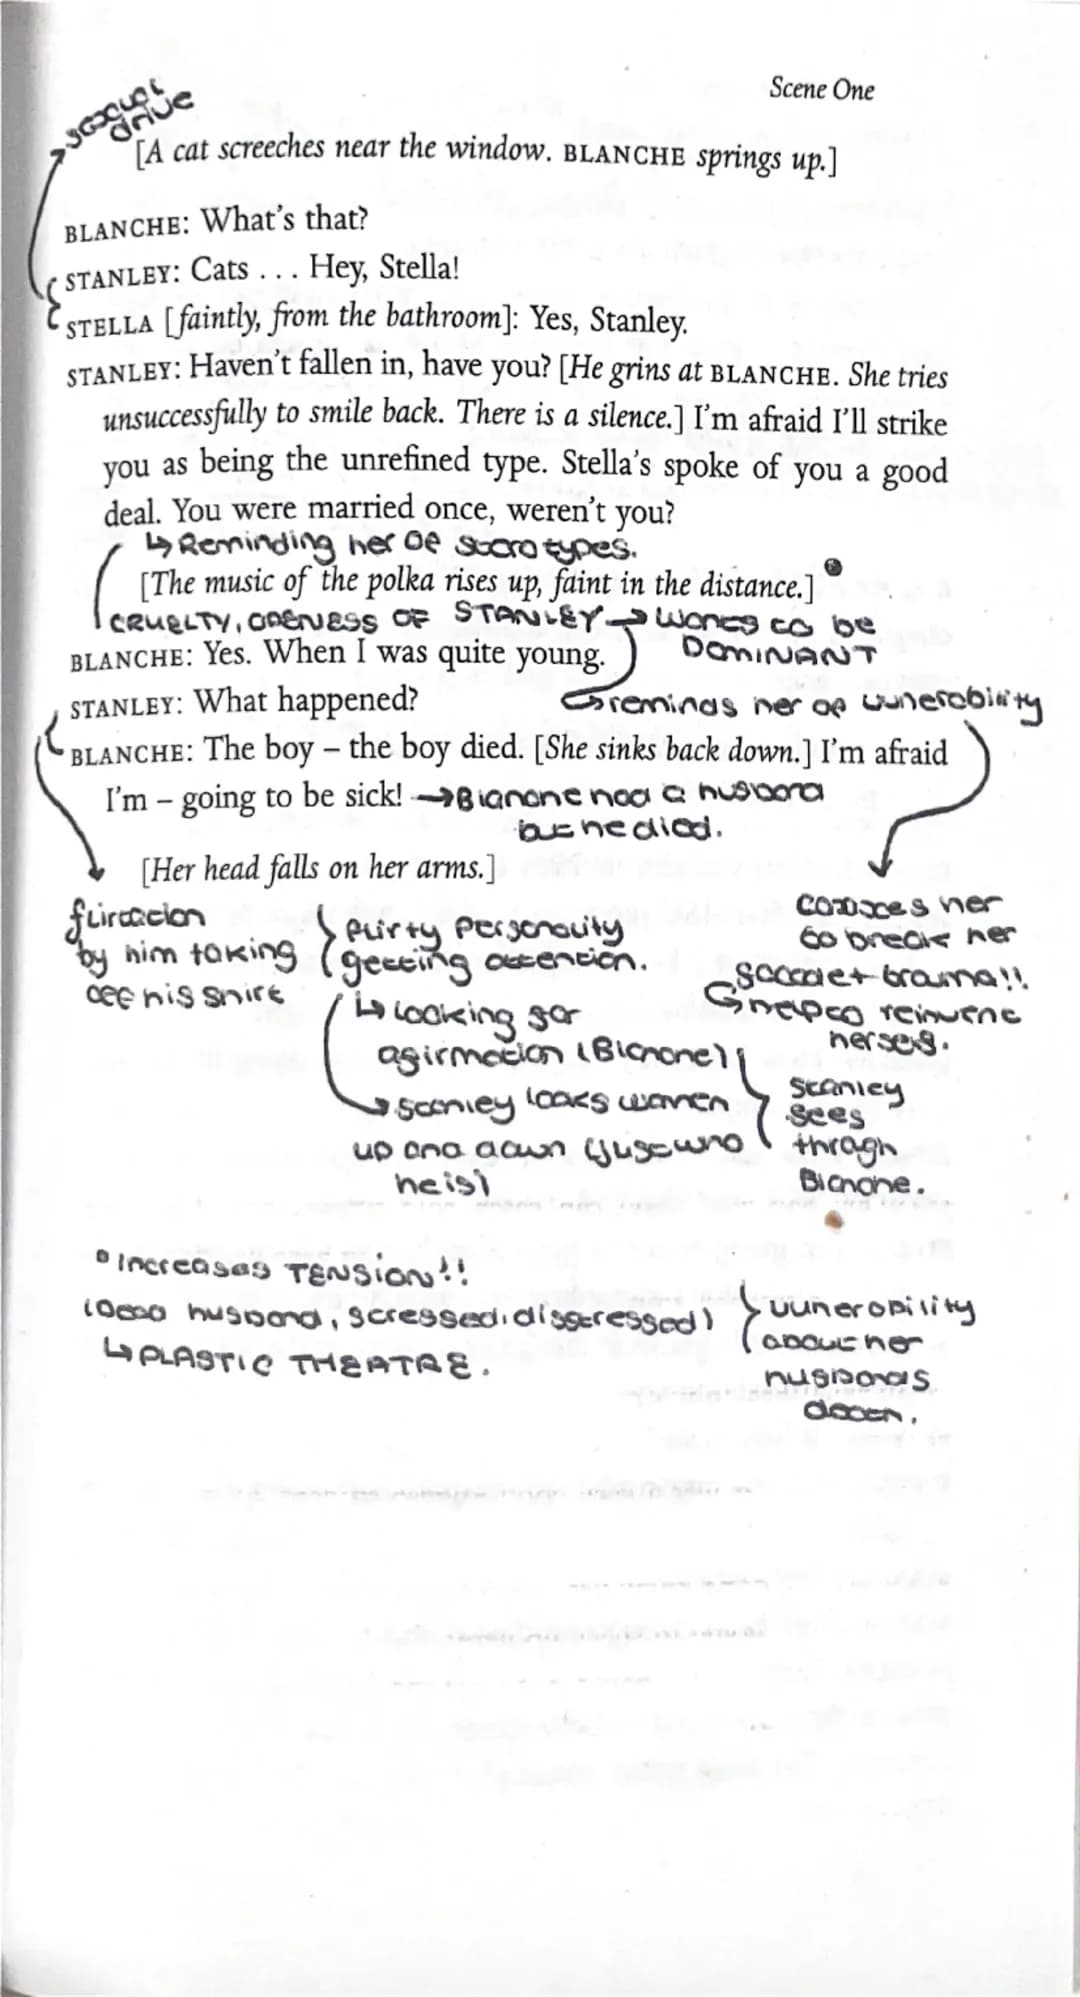 Scene One
sexual
drive
[A cat screeches near the window. BLANCHE springs up.]
BLANCHE: What's that?
STANLEY: Cats . . . Hey, Stella!
STELLA [faintly, from the bathroom]: Yes, Stanley.
STANLEY: Haven't fallen in, have you? [He grins at BLANCHE. She tries
unsuccessfully to smile back. There is a silence.] I'm afraid I'll strike
you as being the unrefined type. Stella's spoke of you a good
deal. You were married once, weren't you?
↳ Reminding her of stereotypes.
[The music of the polka rises up, faint in the distance.]
CRUELTY, OPENESS OF STANLEY → wants to be
DOMINANT
BLANCHE: Yes. When I was quite young.
STANLEY: What happened?
↳ reminds her of vunerability
BLANCHE: The boy – the boy died. [She sinks back down.] I'm afraid
I'm – going to be sick! → Blanche had a husband
but he died.
[Her head falls on her arms.]
flirtation
by him taking
off his shirt
flirty Personality
getting attention.
↳ looking for
afirmation (Blanche)
→ Stanley looks women
up and down (just who
he is)
Stanley
sees
through
Blanche.
her
to break her
trauma!!
reinvent
herself.
• Increases TENSION!!
(dead husband, stressed, disstressed)
↳ PLASTIC THEATRE.
vunerability
about her
husbands
death.